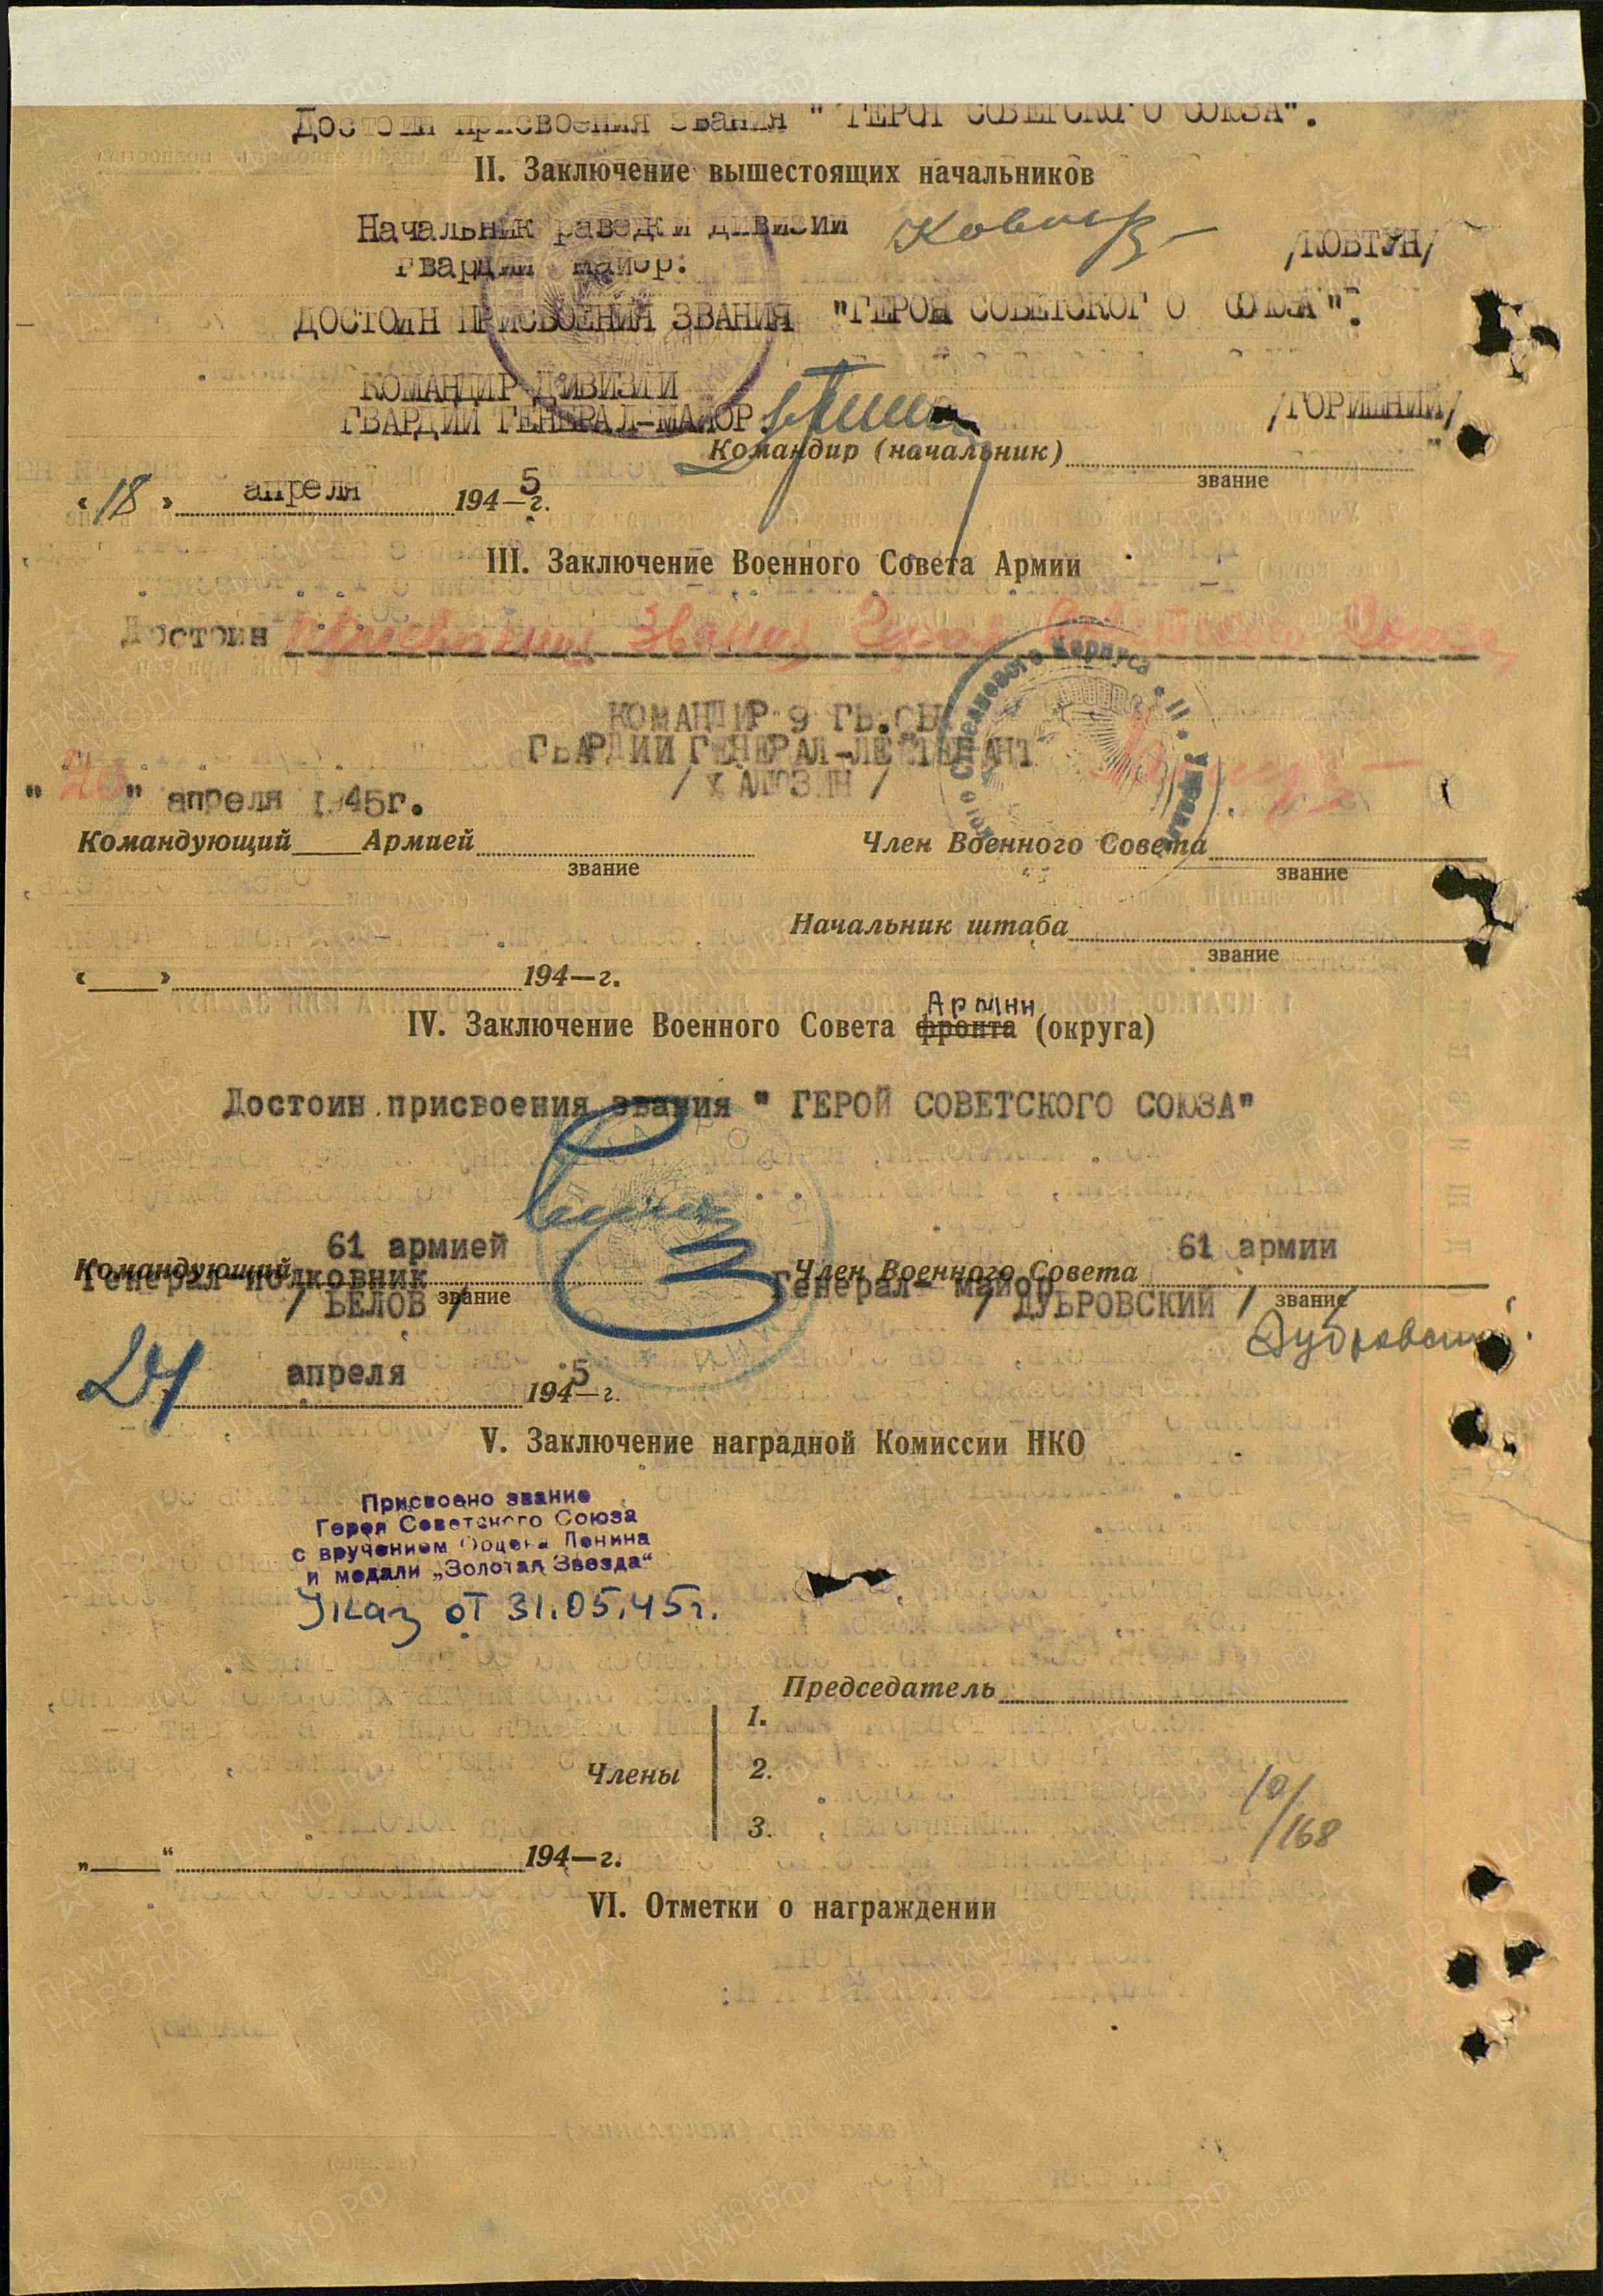 Достоин присвоения звания " ГЕРОЯ СОВЕТСКОГО СОЮЗА".
II. Заключение вышестоящих начальников
Начальник раведки дивизии
гвардии майор:
/КОВТУН/
ДОСТОИН ПРИСВОЕНИЯ ЗВАНИЯ "ГЕРОЯ СОВЕТСКОГО СОЮЗА".
КОМАНДИР ДИВИЗИИ
ГВАРДИИ ГЕНЕРАЛ-МАЙОР
/ГОРИШНИЙ/
Командир (начальник)
звание
«18» апреля 194—5 г.
III. Заключение Военного Совета Армии
Достоин присвоения звания Героя Советского Союза,
КОМАНДИР 9 ГВ.СК
ГВАРДИИ ГЕНЕРАЛ-ЛЕЙТЕНАНТ
/ ХАЛЮЗИН /
"20" апреля 1945г.
Командующий Армией
звание
Член Военного Совета
звание
Начальник штаба
звание
« » 194—г.
Армии
IV. Заключение Военного Совета фронта (округа)
Достоин присвоения звания " ГЕРОЙ СОВЕТСКОГО СОЮЗА"
61 армией
Командующий
Генерал-полковник
/ БЕЛОВ /
звание
61 армии
Член Военного Совета
Генерал- майор
/ ДУБРОВСКИЙ /
звание
Дубровский
24 апреля 194—5 г.
V. Заключение наградной Комиссии НКО
Присвоено звание
Героя Советского Союза
с вручением Ордена Ленина
и медали „Золотая Звезда“
Указ от 31.05.45г.
Председатель
Члены
1.
2.
3.
10/168
„ “ 194—г.
VI. Отметки о награждении